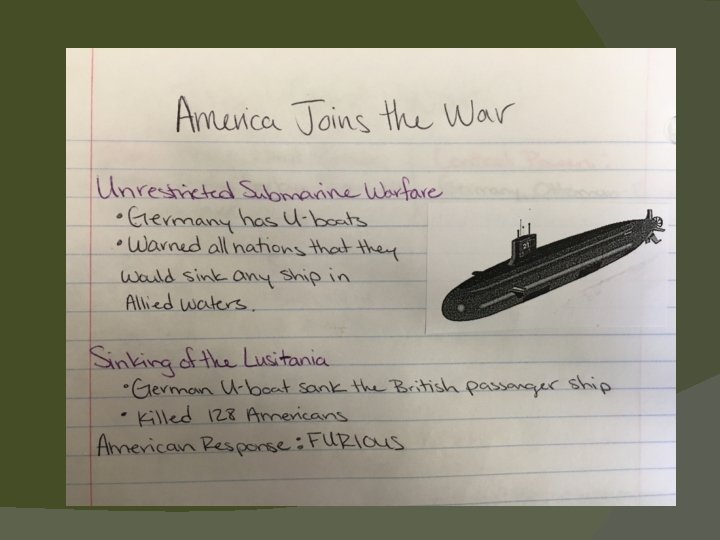 America Joins the War
Unrestricted Submarine Warfare
• Germany has U-boats
• Warned all nations that they
would sink any ship in
Allied waters.
21
Sinking of the Lusitania
• German U-boat sank the British passanger ship
• Killed 128 Americans
American Response: FURIOUS